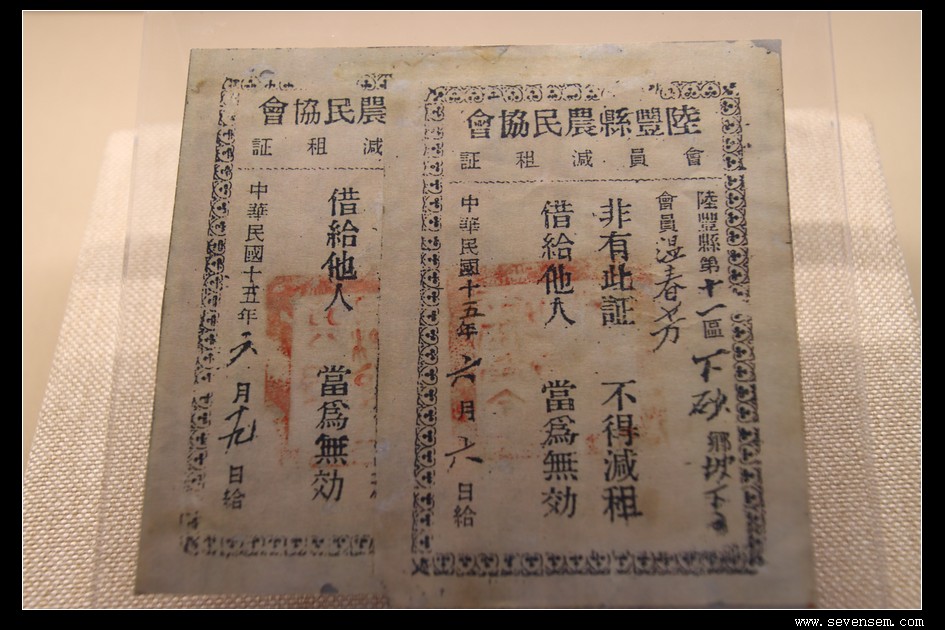 陸豐縣農民協會
會員減租証
陸豐縣第十一區下砂鄉
會員溫春芳
非有此証 不得減租
借給他人 當爲無効
中華民國十五年六月六日給
農民協會
減租証
借給他人 當爲無効
中華民國十五年六月十九日給
www.sevensem.com